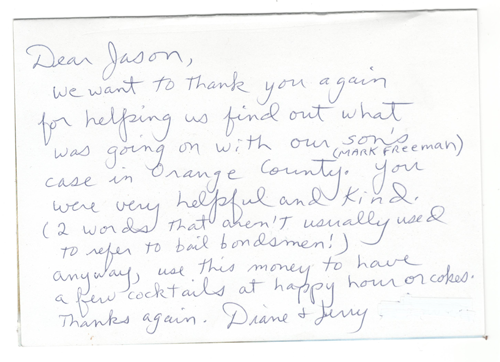 Dear Jason,
we want to thank you again
for helping us find out what
was going on with our son's
(MARK FREEMAN)
case in Orange County. You
were very helpful and kind.
(2 words that aren't usually used
to refer to bail bondsmen!)
anyway, use this money to have
a few cocktails at happy hour or cokes.
Thanks again. Diane & Jerry